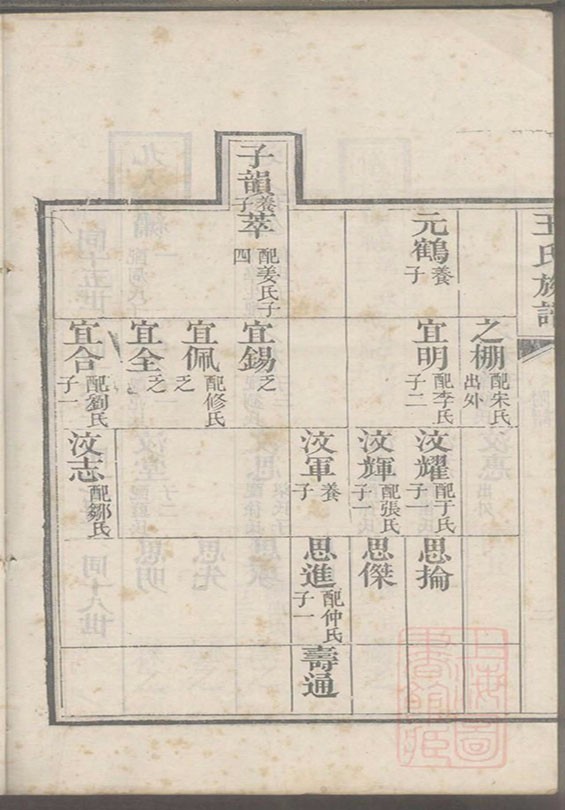 王氏族譜
之棚 配宋氏
出外
元鶴 養
子
宜明 配李氏
子二
汶耀 配于氏
子一
思掄
汶輝 配張氏
子一
思傑
汶軍 養
子
思進 配仲氏
子一
壽通
子韻 養
子
萃 配姜氏子
四
宜錫 乏
宜佩 配修氏
乏
宜全 乏
宜合 配劉氏
子一
汶志 配鄒氏
上海圖書館藏